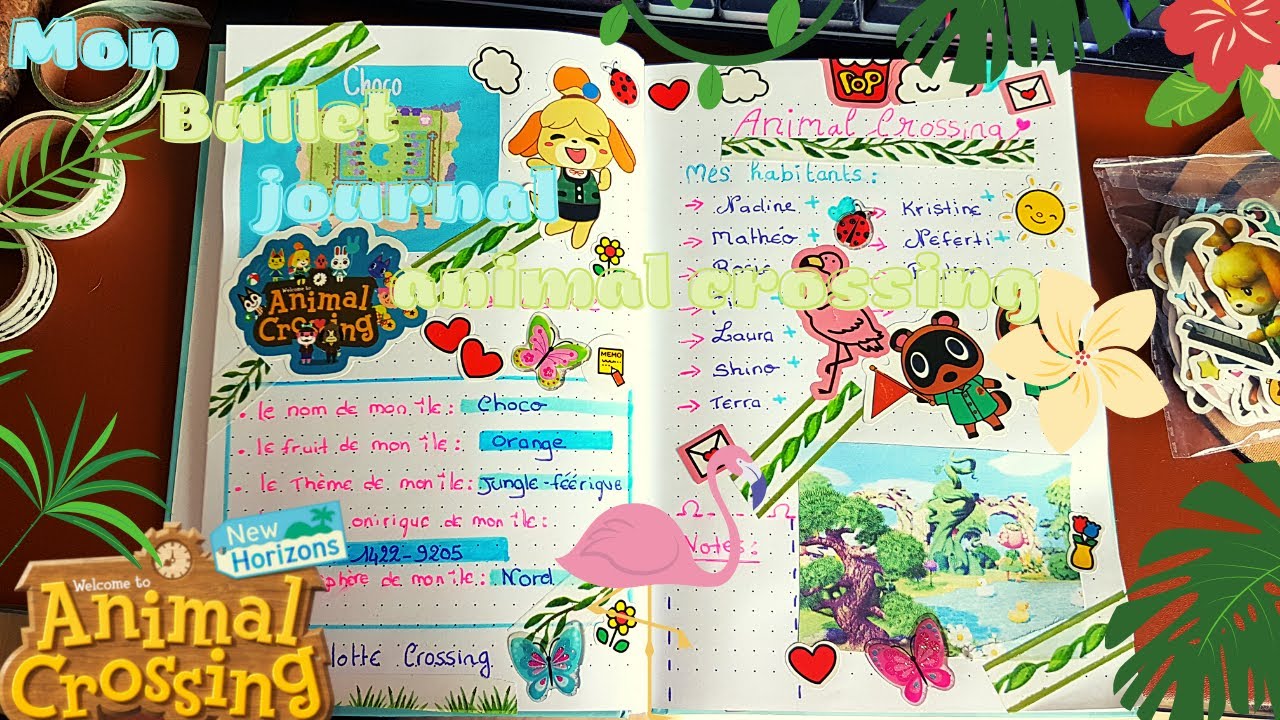 Mon
Bullet
journal
animal crossing
Choco
Welcome to
Animal
Crossing
MEMO
• le nom de mon île : Choco
• le fruit de mon île : Orange
• le Thème de mon île : Jungle-féérique
onirique de mon île :
1422-9205
de mon île : Nord
Crossing
New
Horizons
Welcome to
Animal
Crossing
POP
Animal Crossing
Mes habitants :
→ Nadine +
→ Kristine +
→ Mathéo +
Neferti +
→ Laura +
→ Shino +
→ Terra +
Notes :